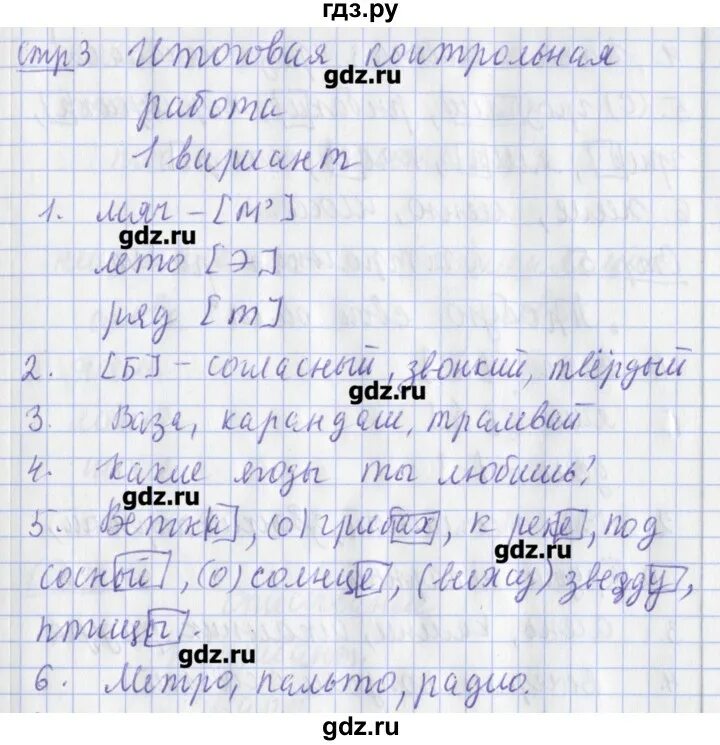 гдз.ру
стр 3 Итоговая контрольная
gdz.ru
работа
1 вариант
1. мяч - [м']
gdz.ru
лето [э]
ряд [т]
2. [Б] - согласный, звонкий, твёрдый
gdz.ru
3. Ваза, карандаш, трамвай
4. Какие ягоды ты любишь?
gdz.ru
5 Ветка, (о) грибах, к реке, под
gdz.ru
сосный, (о) солнце, (вижу) звезду,
птицы.
gdz.ru
6. Метро, пальто, радио.
gdz.ru